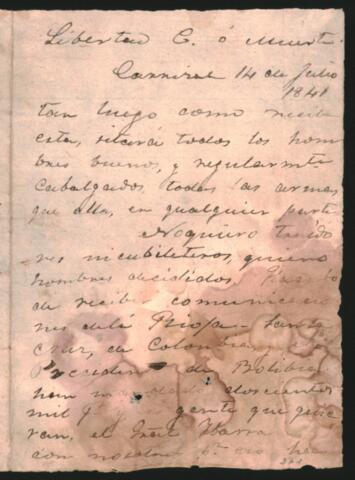 Libertad C. ó Muerte
Carrizal 14 de Julio
1841
tan luego como recibe
esta, citará todos los hom
bres buenos, y regularmte
cabalgados, todas las armas
que alla, en qualquier parte
No quiero traido
res ni cubileteros, quiero
hombres decididos.
de recibir comunicacio
nes de la Rioja - Santa
Cruz, de Colombia
Precidente de Bolibia
han mandado doscientos
mil y gente que quie
ran, el Ybarra
con nosotros